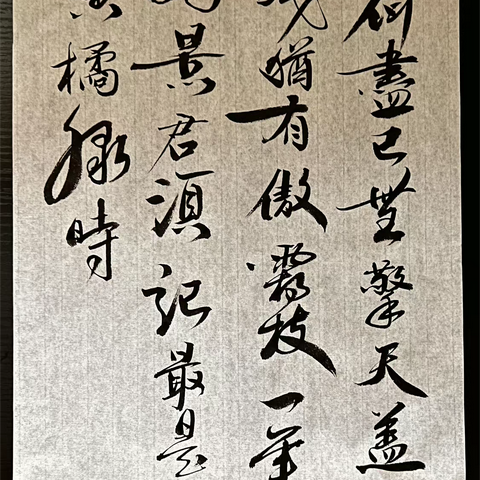 荷盡已無擎天蓋
殘猶有傲霜枝一年
好景君湏記最是
黃橘綠時